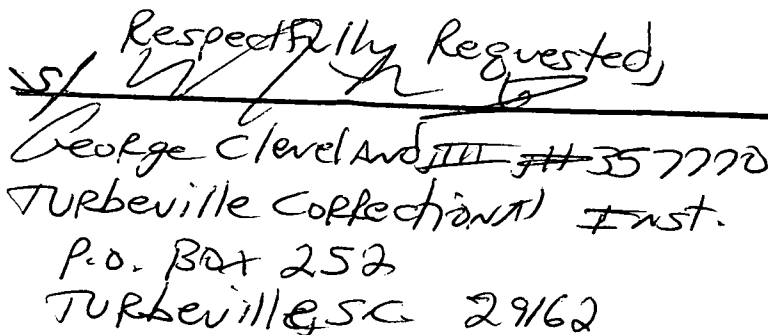 Respectfully Requested,
s/
George Cleveland, III, #357770
Turbeville Correctional Inst.
P.O. Box 252
Turbeville, SC 29162